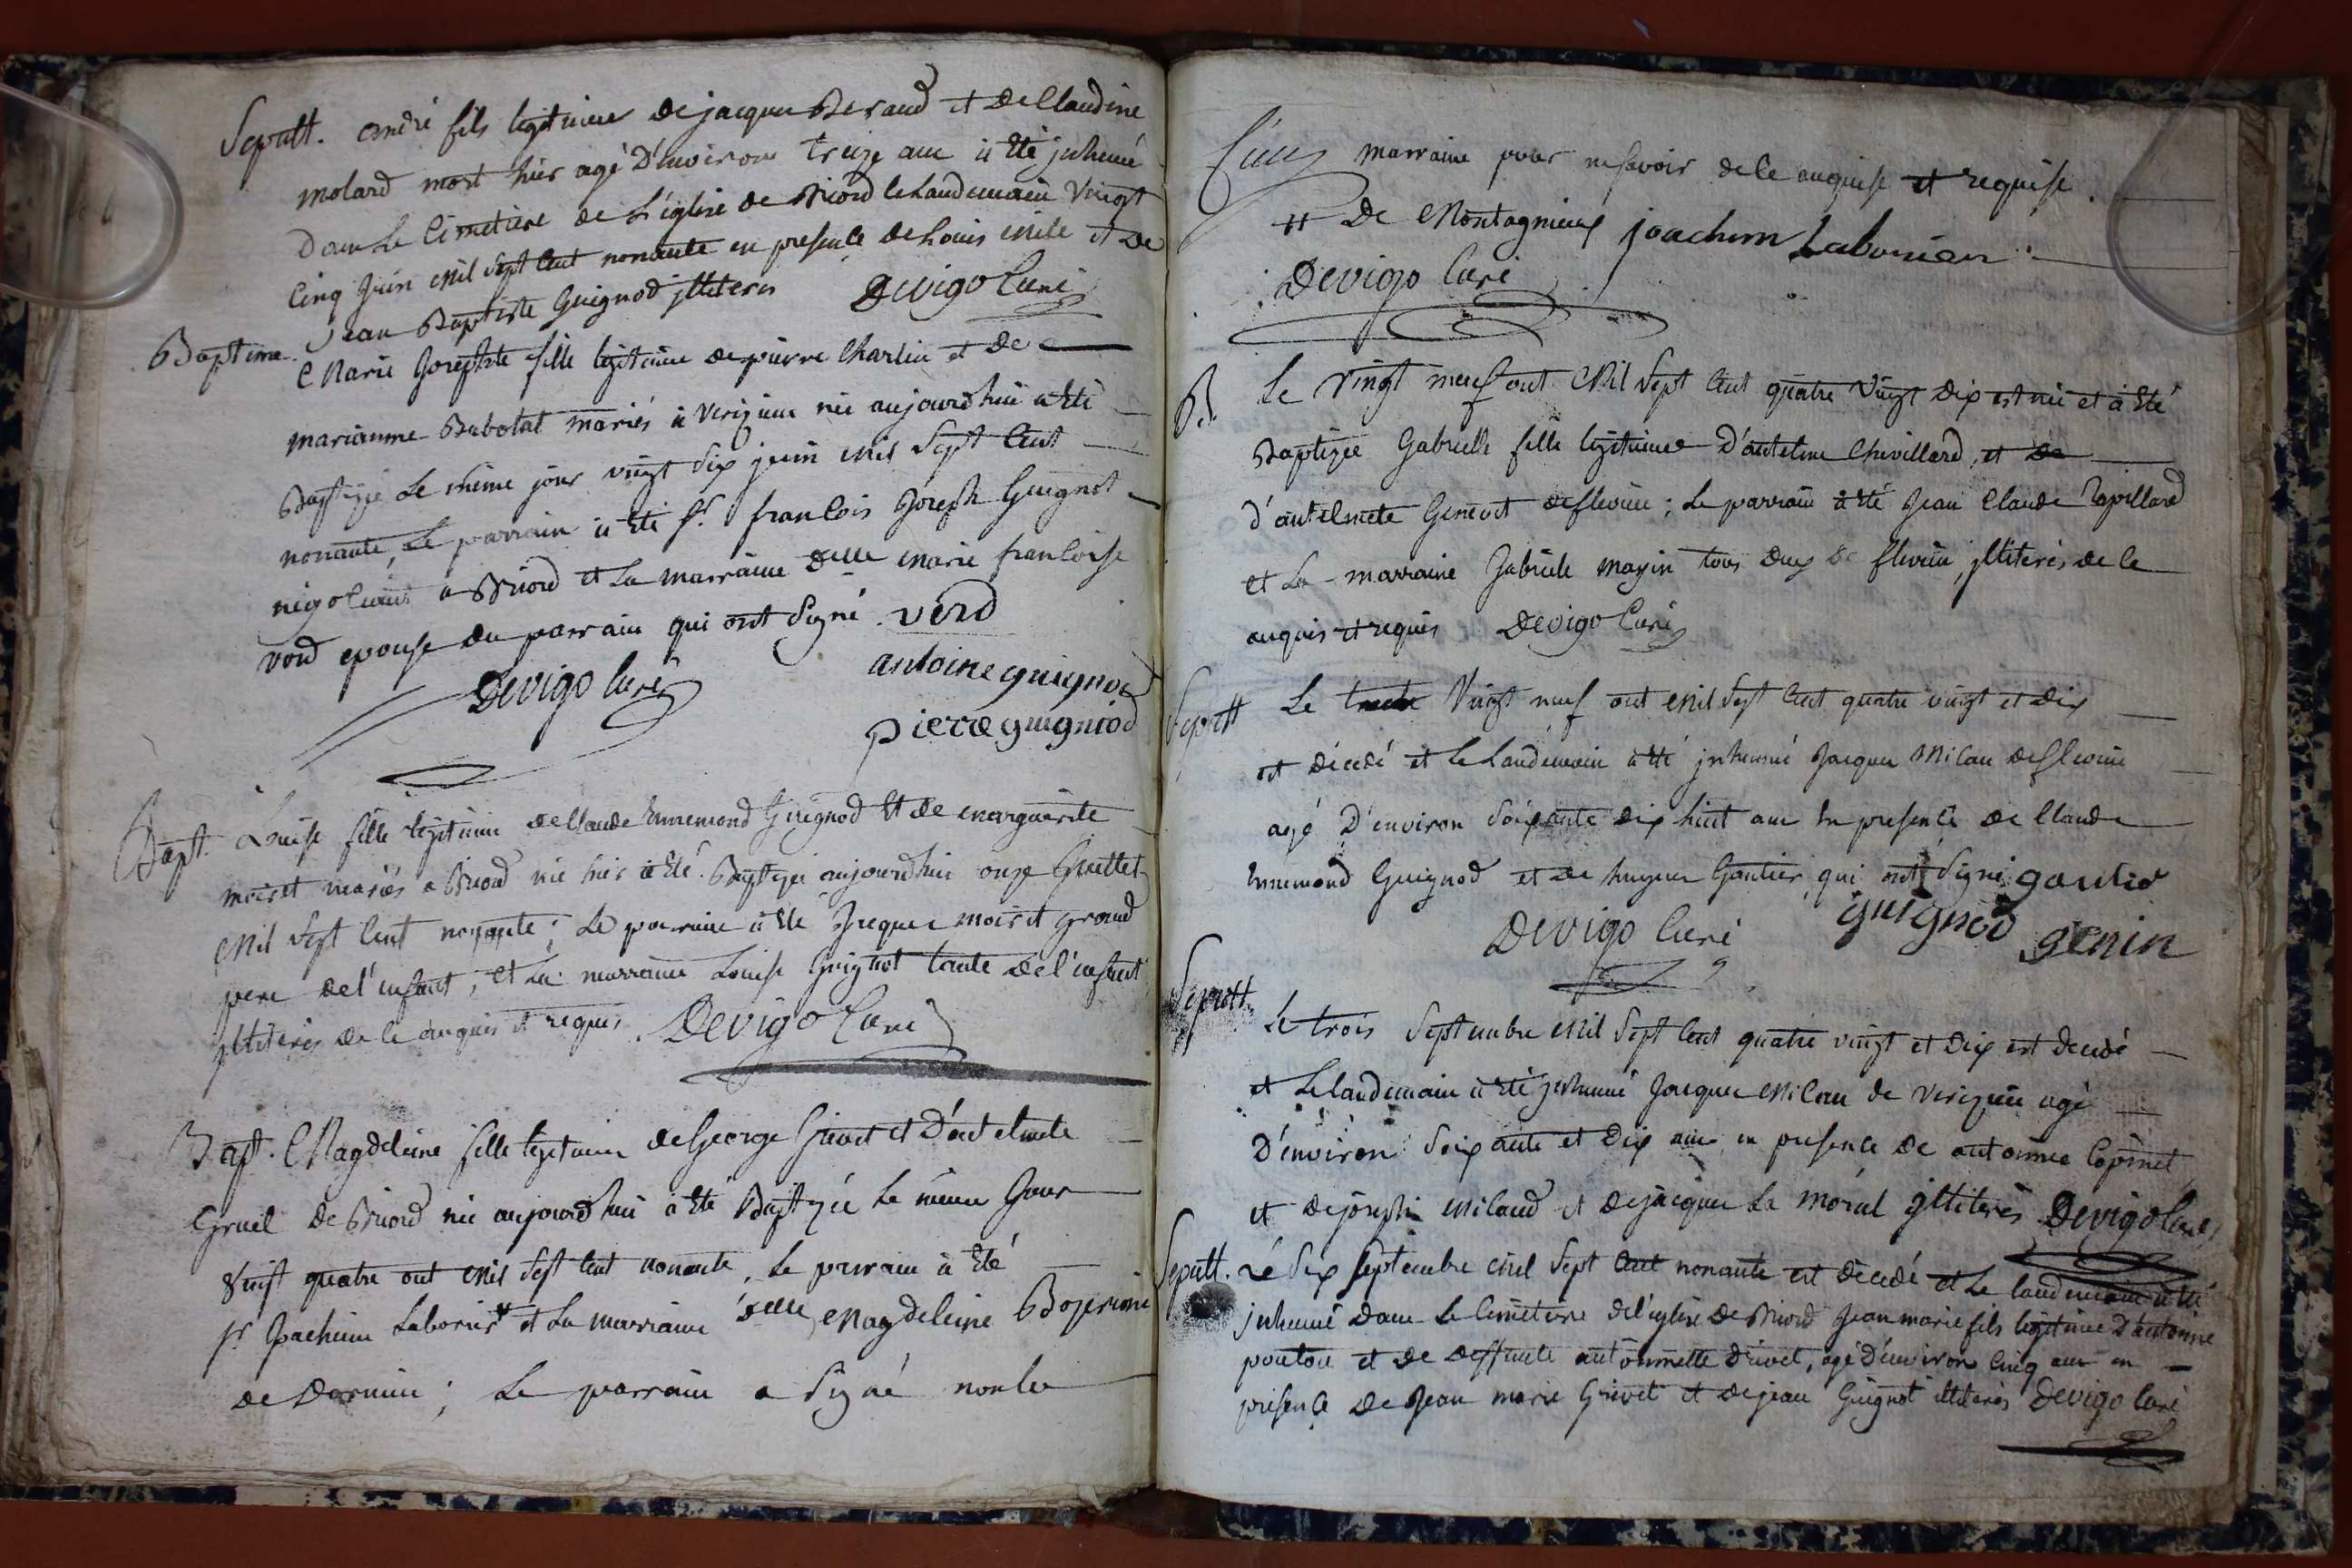 Sepult. andré fils legitime de jacque Beraud et de Claudine
molard mort hier agé d'environ treize ans à été inhumé
dans le Cimetière de L'église de Briord le landemain vingt
Cinq Juin mil sept cent nonante en presence de Louis mile et de
Jean Baptiste Guignod illiteres Devigo Curé
Baptime. Marie Josephte fille legitime de pierre Charlin et de
marianne Babolat mariés à verizieu née aujourdhui a été
Baptizée le même jour vingt six juin mil sept cent
nonante, Le parrain à été Sr. francois Joseph Guignot
négotiant a Briord et la marraine Delle marie francoise
vord epouse du parrain qui ont signé. verd
Devigo Curé antoine guignod
pierre guigniod
Bapt. Louise fille legitime de Claude Ennemond Guignod et de marguerite
moiret mariés a Briord née hier à été Baptizée aujourdhui onze Juillet
mil sept cent nonante; Le parrain à été Jacque moiret grand
pere de l'enfant, et la marraine Louise Guignot tante de l'enfant
illiterés de ce enquis et requis. Devigo Curé
Bapt. Magdeleine fille legitime de George Grivet et d'antelmete
Gruel de Briord née aujourdhui à été Baptizée le même Jour
vingt quatre out mil sept cent nonante, Le parrain à été
Sr Joachim Laborier # et La marraine Delle Magdeleine
de ; Le parrain a signé non la
marraine pour ne savoir de ce enquise et requise.
# De Montagnieux joachim Laborier
Devigo Curé
B. Le vingt neuf out mil sept cent quatre vingt dix est née et à été
Baptizée Gabrielle fille legitime d'antelme Chevillard, et de
d'antelmete Genevet de flevieu; Le parrain à été Jean Claude Rapillard
et La marraine Gabriele magin tous deux de flevieu, illiterés de ce
enquis et requis Devigo Curé
Sepult Le trente vingt neuf out mil sept cent quatre vingt et dix
est décedé et le landemain à été inhumé Jacque Milan de flevieu
agé d'environ soixante dix huit ans En presence de Claude
Ennemond Guignod et de hugue Gautier qui ont signé gautier
Devigo Curé guignod genin
Sepult. Le trois Septembre mil sept cent quatre vingt et dix est decedé
et Le landemain à été inhumé Jacque Milan de verizieu agé
d'environ soixante et dix ans en presence de antoinne
et de joseph milaud et de jacque La moral illiterés Devigo Curé
Sepult. Le six septembre mil sept cent nonante est décedé et Le landemain à été
inhumé dans Le Cimetiere de l'eglise de Briord Jean marie fils legitime d'antoinne
ponton et de deffunte antoinnette drivet, agé d'environ Cinq ans en
presence de Jean marie Grivet et de jean Guignot illiterés Devigo Curé